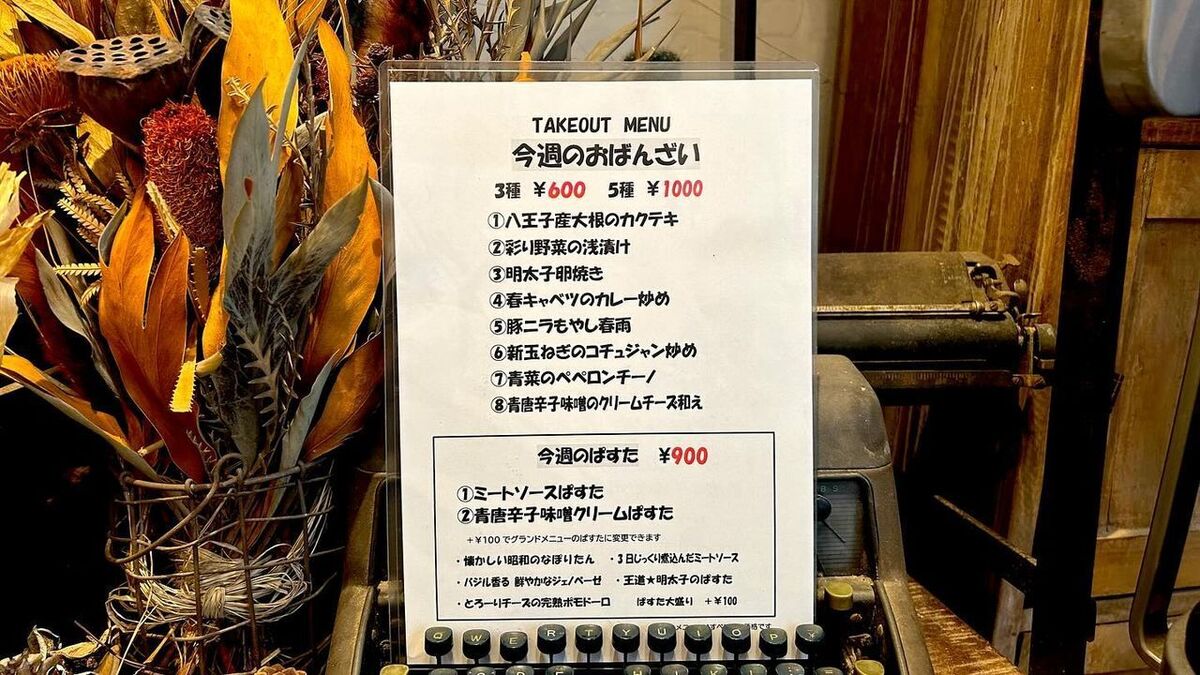 TAKEOUT MENU
今週のおばんざい
3種 ¥600 5種 ¥1000
①八王子産大根のカクテキ
②彩り野菜の浅漬け
③明太子卵焼き
④春キャベツのカレー炒め
⑤豚ニラもやし春雨
⑥新玉ねぎのコチュジャン炒め
⑦青菜のペペロンチーノ
⑧青唐辛子味噌のクリームチーズ和え
今週のぱすた ¥900
①ミートソースぱすた
②青唐辛子味噌クリームぱすた
+¥100でグランドメニューのぱすたに変更できます
・懐かしい昭和のなぽりたん ・3日じっくり煮込んだミートソース
・バジル香る 鮮やかなジェノベーゼ ・王道★明太子のぱすた
・とろーりチーズの完熟ポモドーロ ぱすた大盛り +¥100
Q W E R T Y U I O P